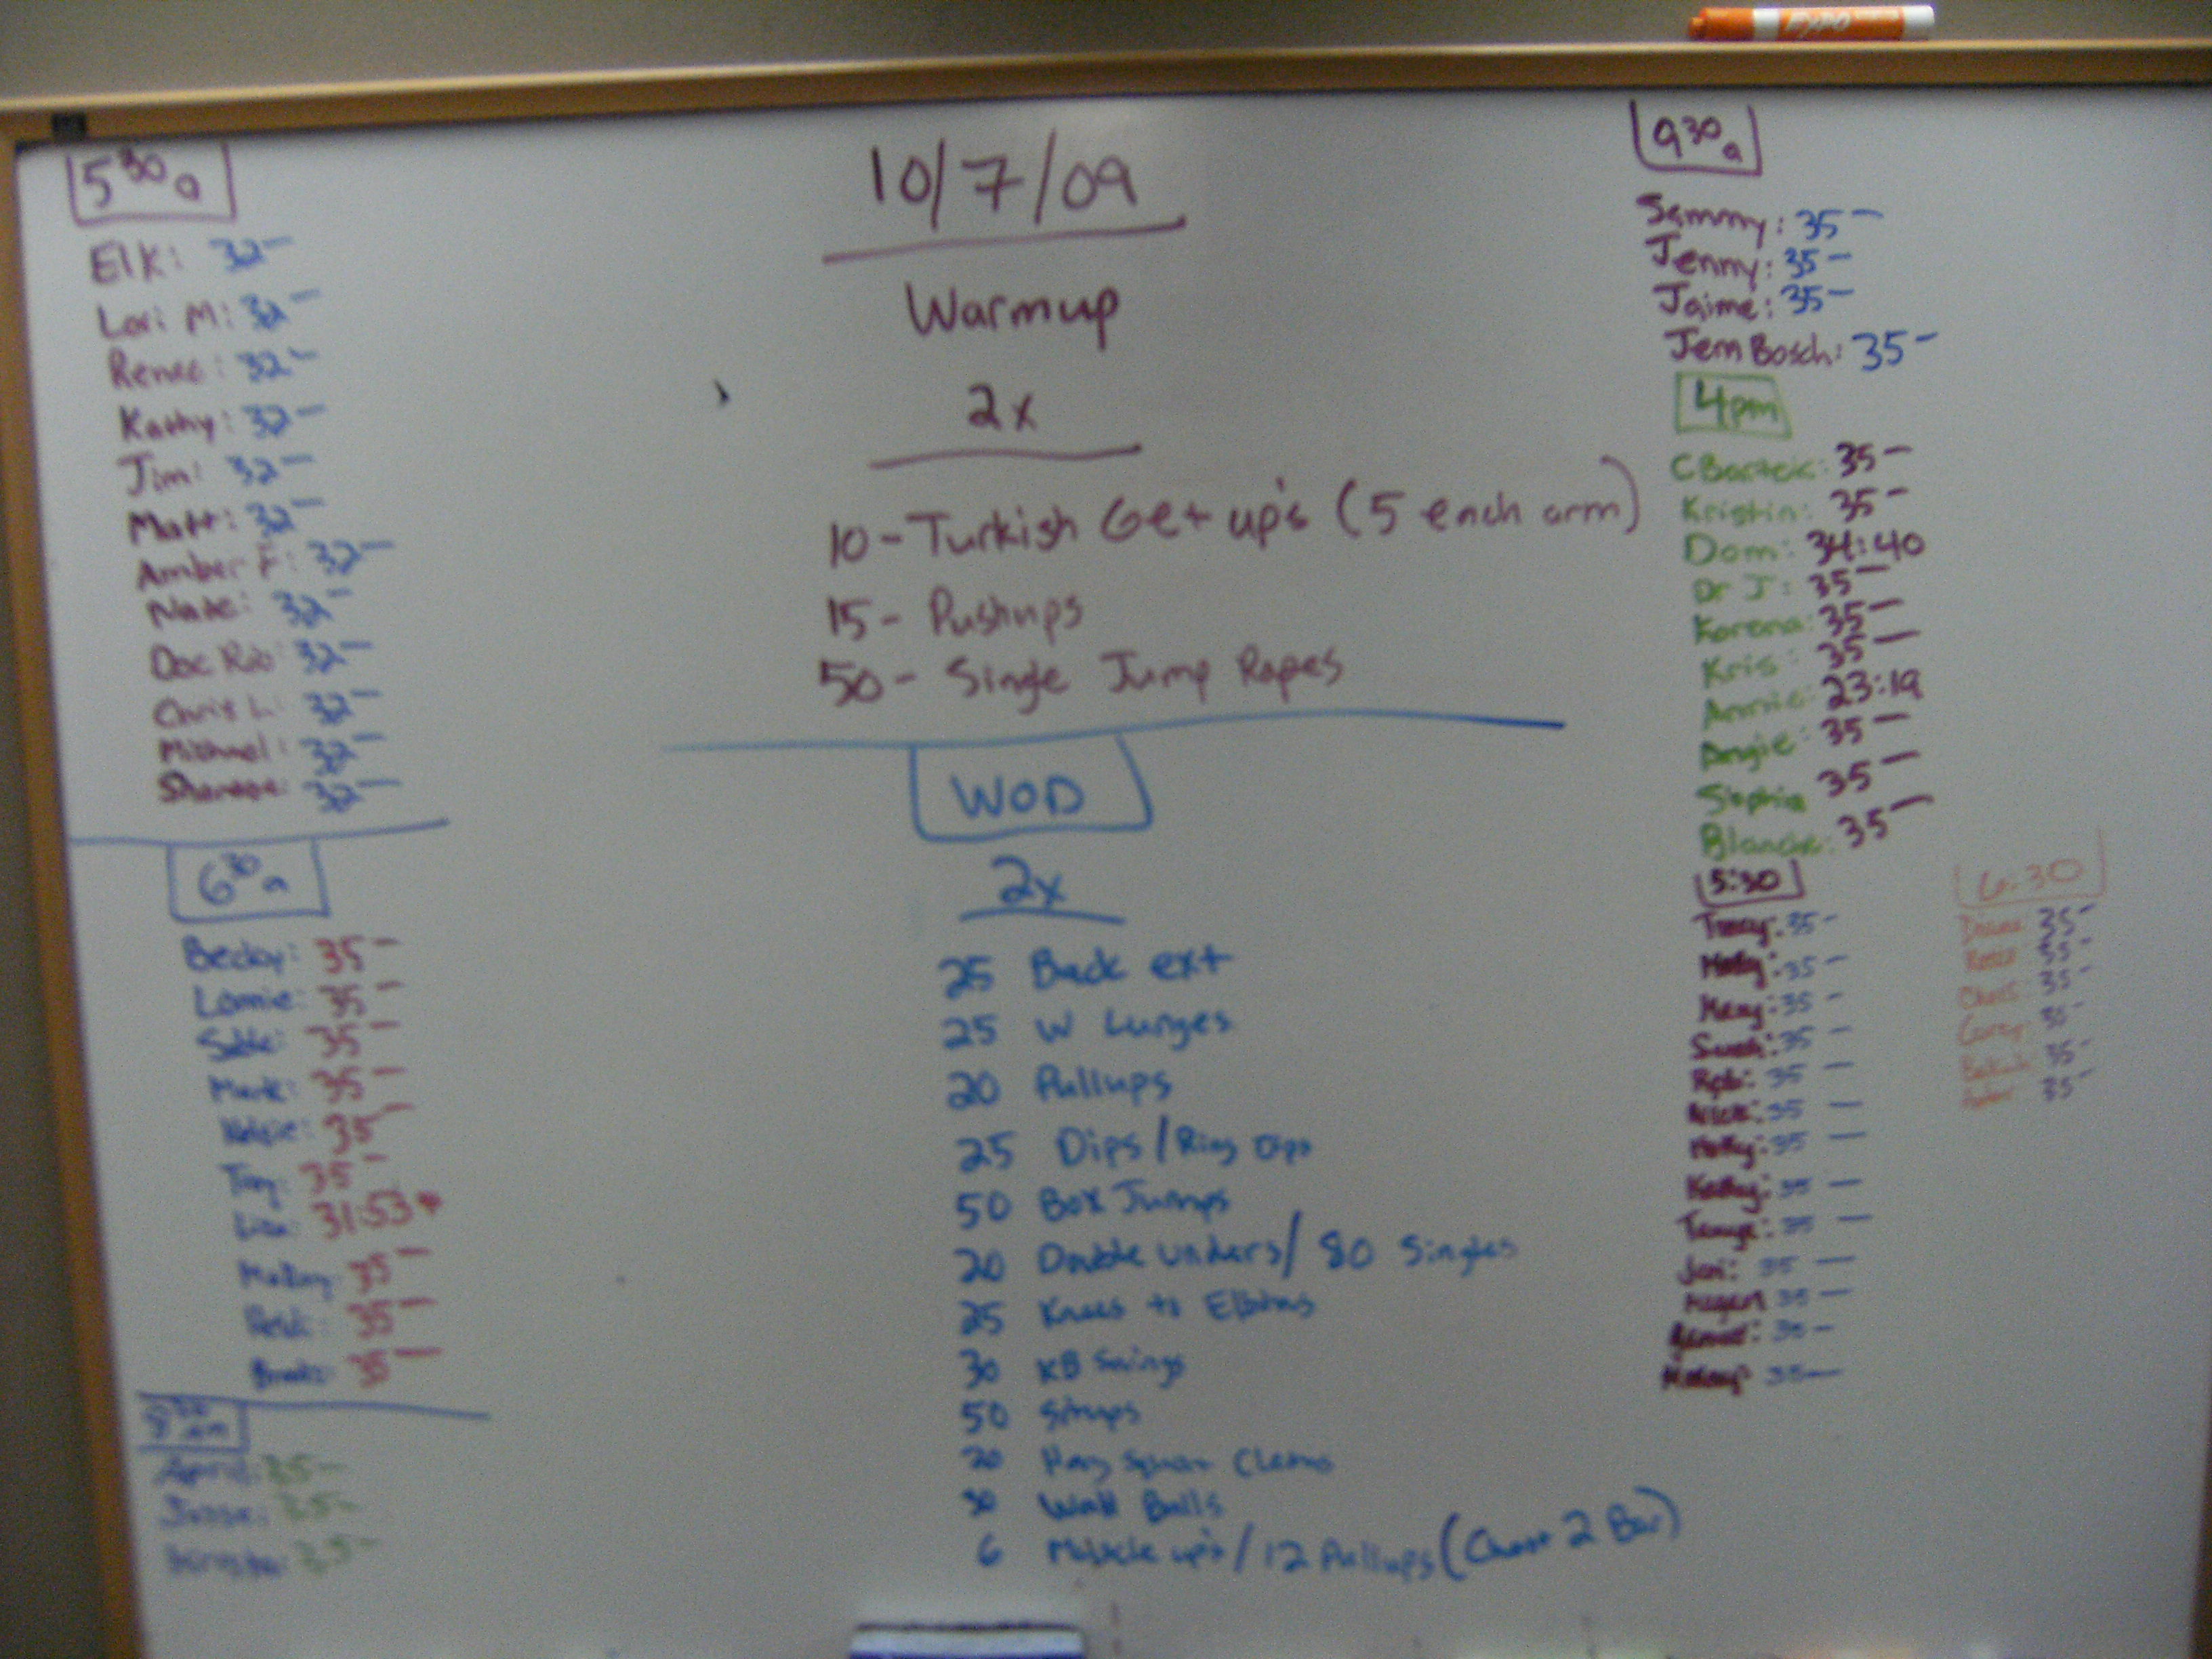 EXPO
5 30 a
Elk: 32-
Lori M: 32-
Renee: 32-
Kathy: 32-
Jim: 32-
Matt: 32-
Amber F: 32-
Nate: 32-
Doc Rob: 32-
Chris L: 32-
Michael: 32-
32-
6 30 a
Becky: 35-
Lonnie: 35-
35-
Mark: 35-
Kelsie: 35-
35-
Lisa: 31:53 *
35-
35-
35-
am
April: 35-
35-
35-
10/7/09
Warmup
2x
10 - Turkish Get up's (5 each arm)
15 - Pushups
50 - Single Jump Ropes
WOD
2x
25 Back ext
25 W Lunges
20 Pullups
25 Dips / Ring Dips
50 Box Jumps
20 Double unders / 80 Singles
25 Knees to Elbows
30 KB Swings
50 Situps
20 Hang Squat Cleans
30 Wall Balls
6 Muscle up's / 12 Pullups (Chest 2 Bar)
9 30 a
Sammy: 35-
Jenny: 35-
Jaime: 35-
Jem Bosch: 35-
4pm
C Bartek: 35-
Kristin: 35-
Dom: 34:40
Dr J: 35-
Korena: 35-
Kris: 35-
Annie: 23:19
Angie: 35-
Sophia 35-
Blanche: 35-
5:30
Tracy: 35-
35-
35-
35-
Rob: 35-
Nick: 35-
Holly: 35-
Kathy: 35-
Tanya: 35-
Jori: 35-
Megan 35-
35-
35-
6:30
35-
35-
Chris 35-
35-
35-
35-